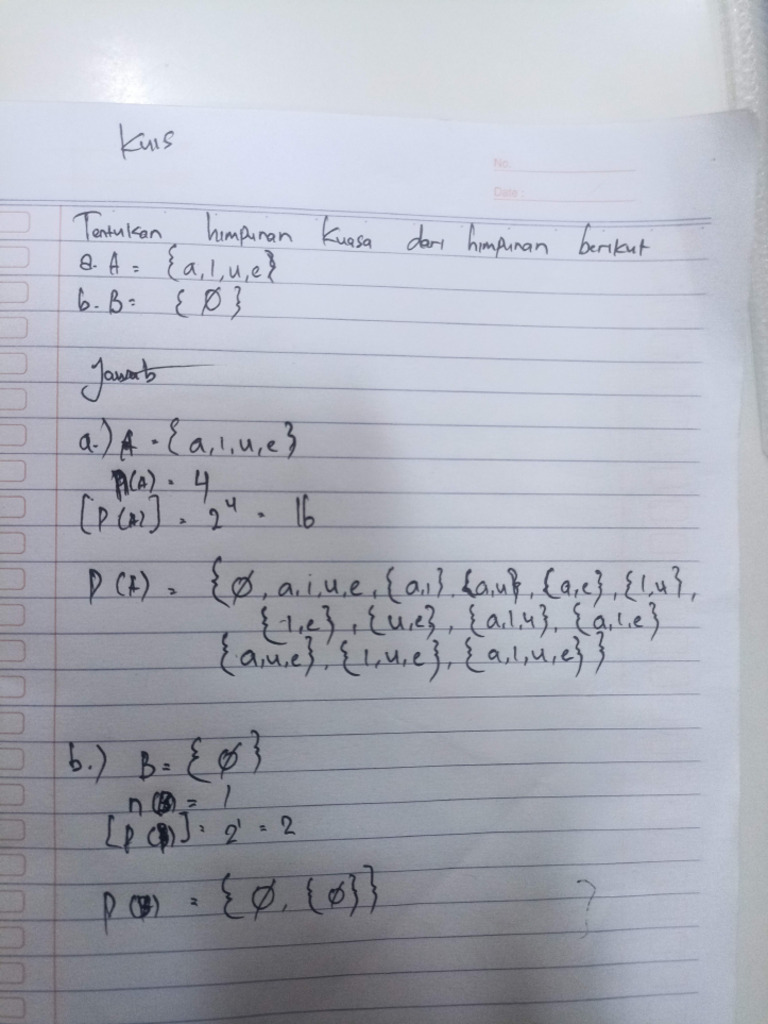 Kuis
No:
Date:
Tentukan himpunan kuasa dari himpunan berikut
a. A = {a, i, u, e}
b. B = {Ø}
Jawab
a.) A = {a, i, u, e}
n(A) = 4
[P(A)] = 2⁴ = 16
P(A) = {Ø, a, i, u, e, {a,i}, {a,u}, {a,e}, {i,u},
{i,e}, {u,e}, {a,i,u}, {a,i,e}
{a,u,e}, {i,u,e}, {a,i,u,e}}
b.) B = {Ø}
n(B) = 1
[P(B)] = 2¹ = 2
P(B) = {Ø, {Ø}}